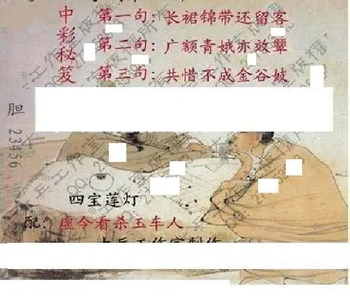 中彩秘笈
第一句：长裙锦带还留客
第二句：广额青娥亦效颦
第三句：共惜不成金谷妓
胆 23456
四宝莲灯
配：虚令看杀玉车人